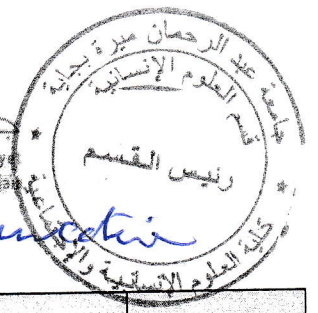 جامعة عبد الرحمان ميرة بجاية
قسم العلوم الإنسانية
رئيس القسم
كلية العلوم الإنسانية والإجتماعية